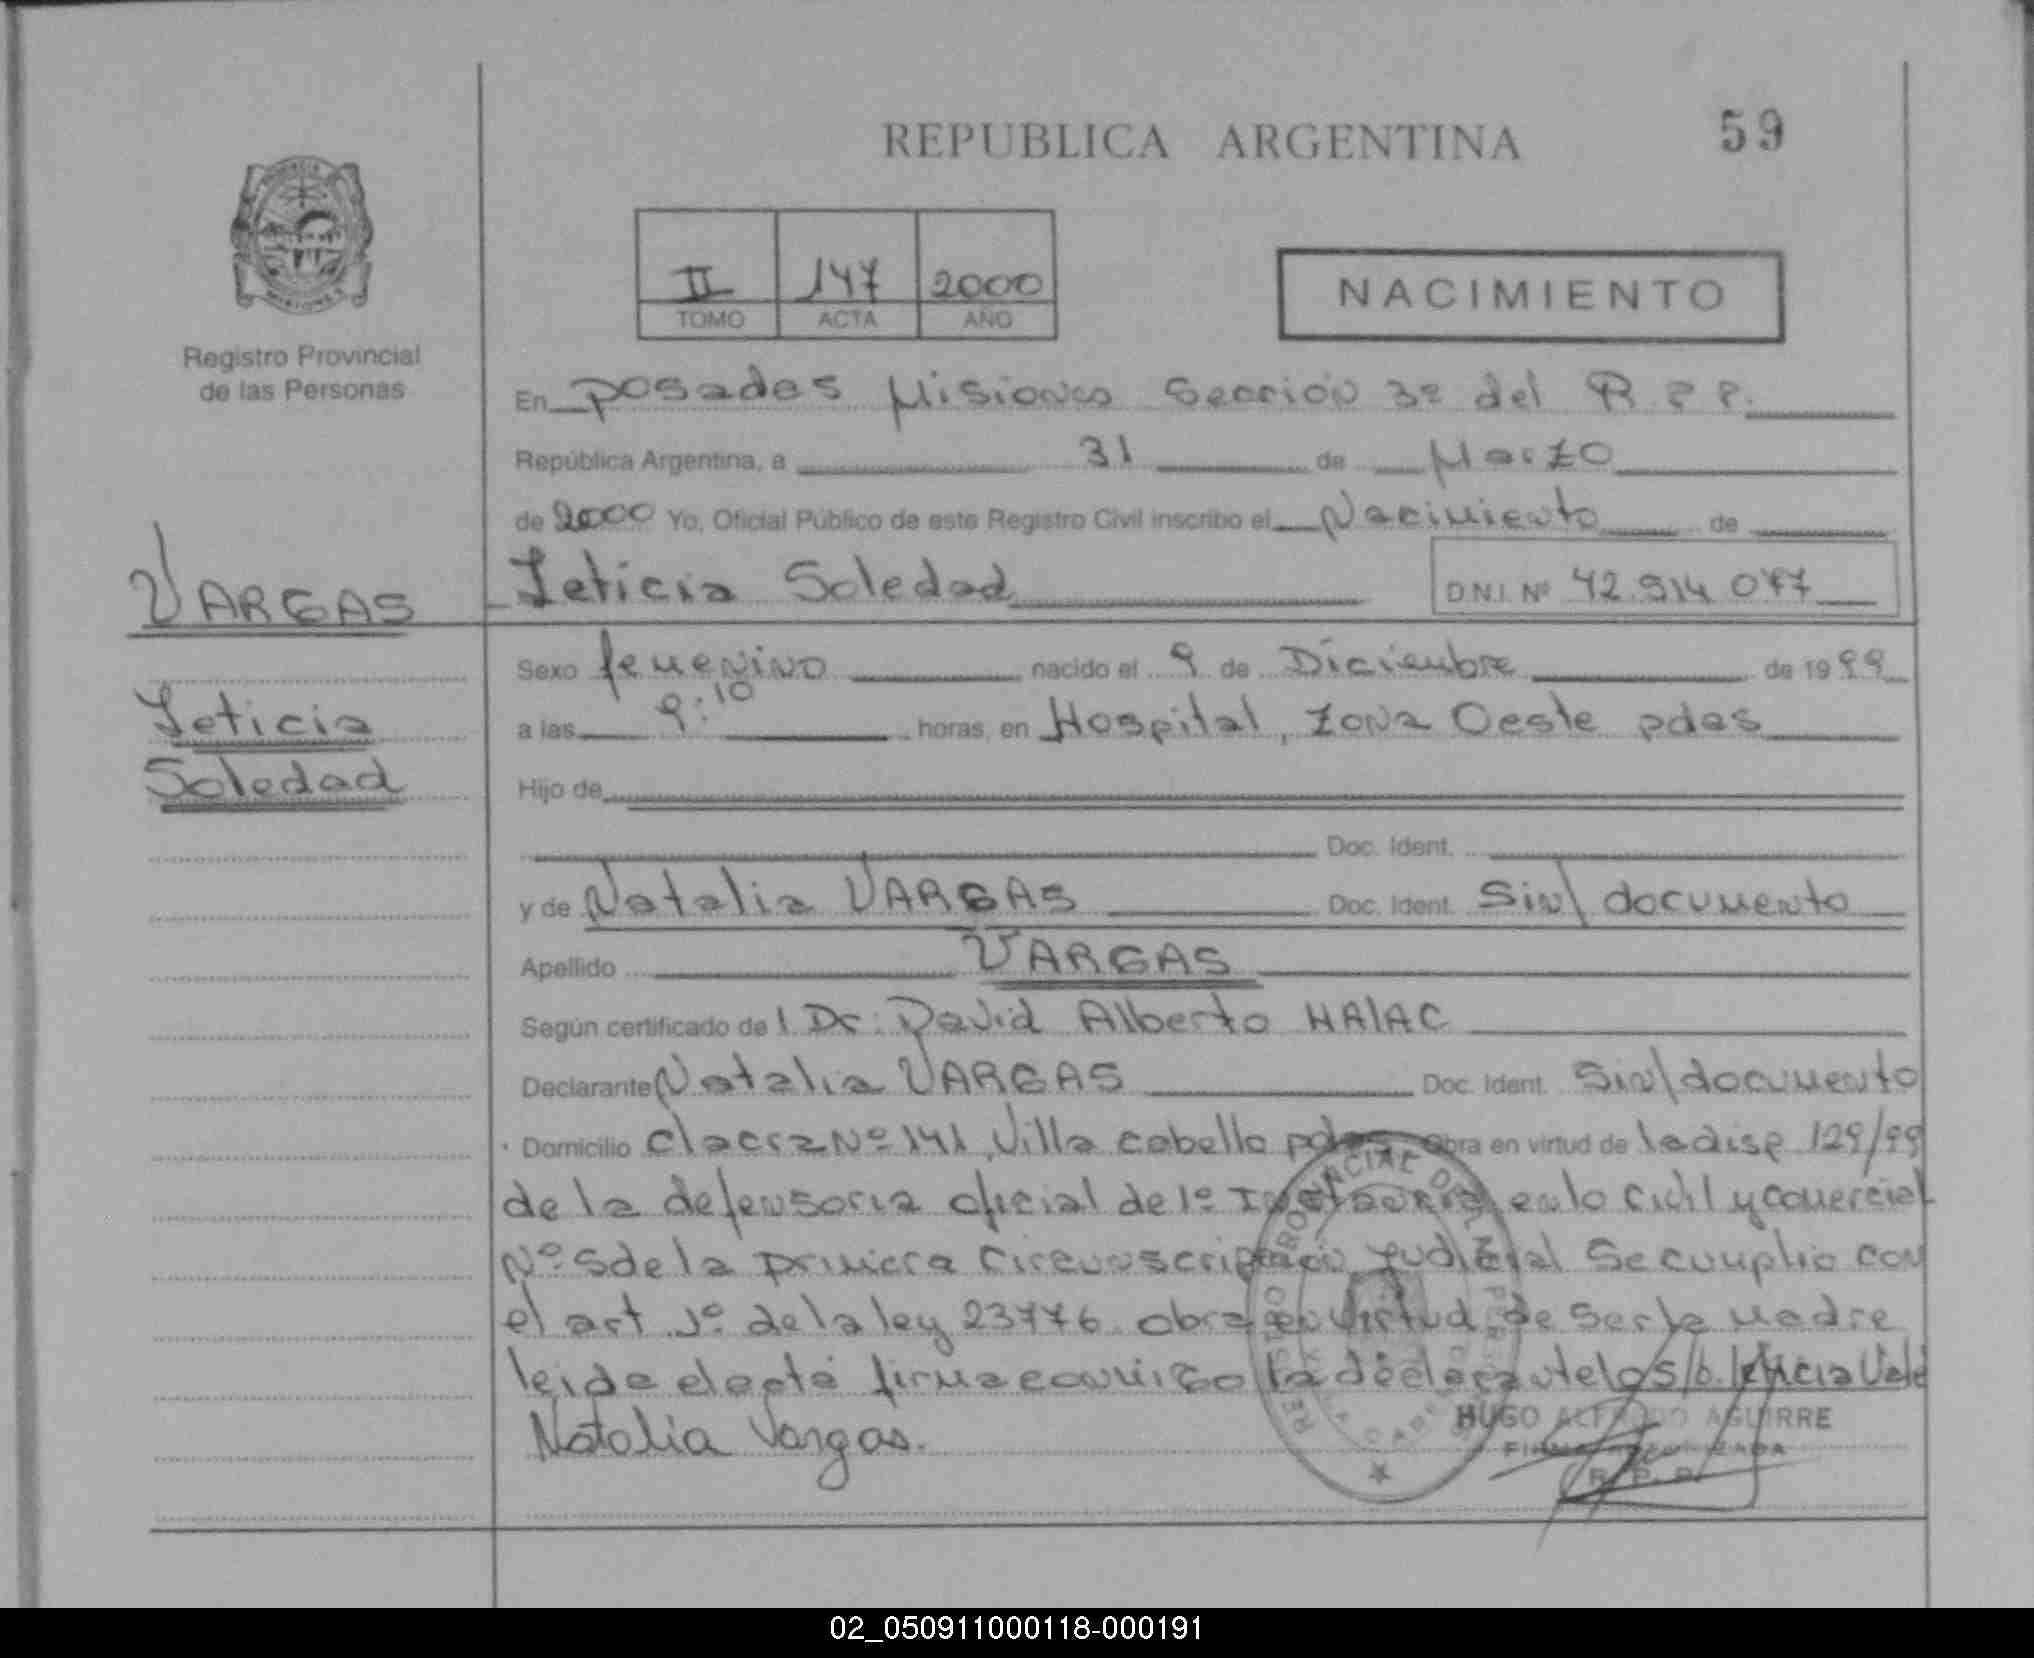 REPUBLICA ARGENTINA
59
II 147 2000
TOMO ACTA AÑO
NACIMIENTO
Registro Provincial
de las Personas
En Posadas Misiones Sección 3º del R P P.
República Argentina, a 31 de Marzo
de 2000 Yo, Oficial Público de este Registro Civil inscribo el Nacimiento de
VARGAS
Leticia Soledad D.N.I. Nº 42.914 077
Sexo femenino nacido el 9 de Diciembre de 1999
Leticia
a las 9:10 horas, en Hospital, Zona Oeste pdas
Soledad
Hijo de
Doc. Ident.
y de Natalia VARGAS Doc. Ident. Sin/ documento
Apellido VARGAS
Según certificado de l Dr: David Alberto HALAC
Declarante Natalia VARGAS Doc. Ident. Sin/documento
Domicilio chacra Nº 141, Villa cabello pdas obra en virtud de la disp 129/99
de la defensoria oficial de 1º Instancia en lo Civil y comercial
Nº 5 de la primera Circunscripción Judicial Se cumplio con
el art 1º de la ley 23776. obra en virtud de ser la madre
leida el acta firma conmigo la declarante los/b. leticia Vale
Natalia Vargas.
HUGO ALFREDO AGUIRRE
FIRMA AUTORIZADA
R. P. P.
REGISTRO PROVINCIAL DE LAS PERSONAS
02_050911000118-000191